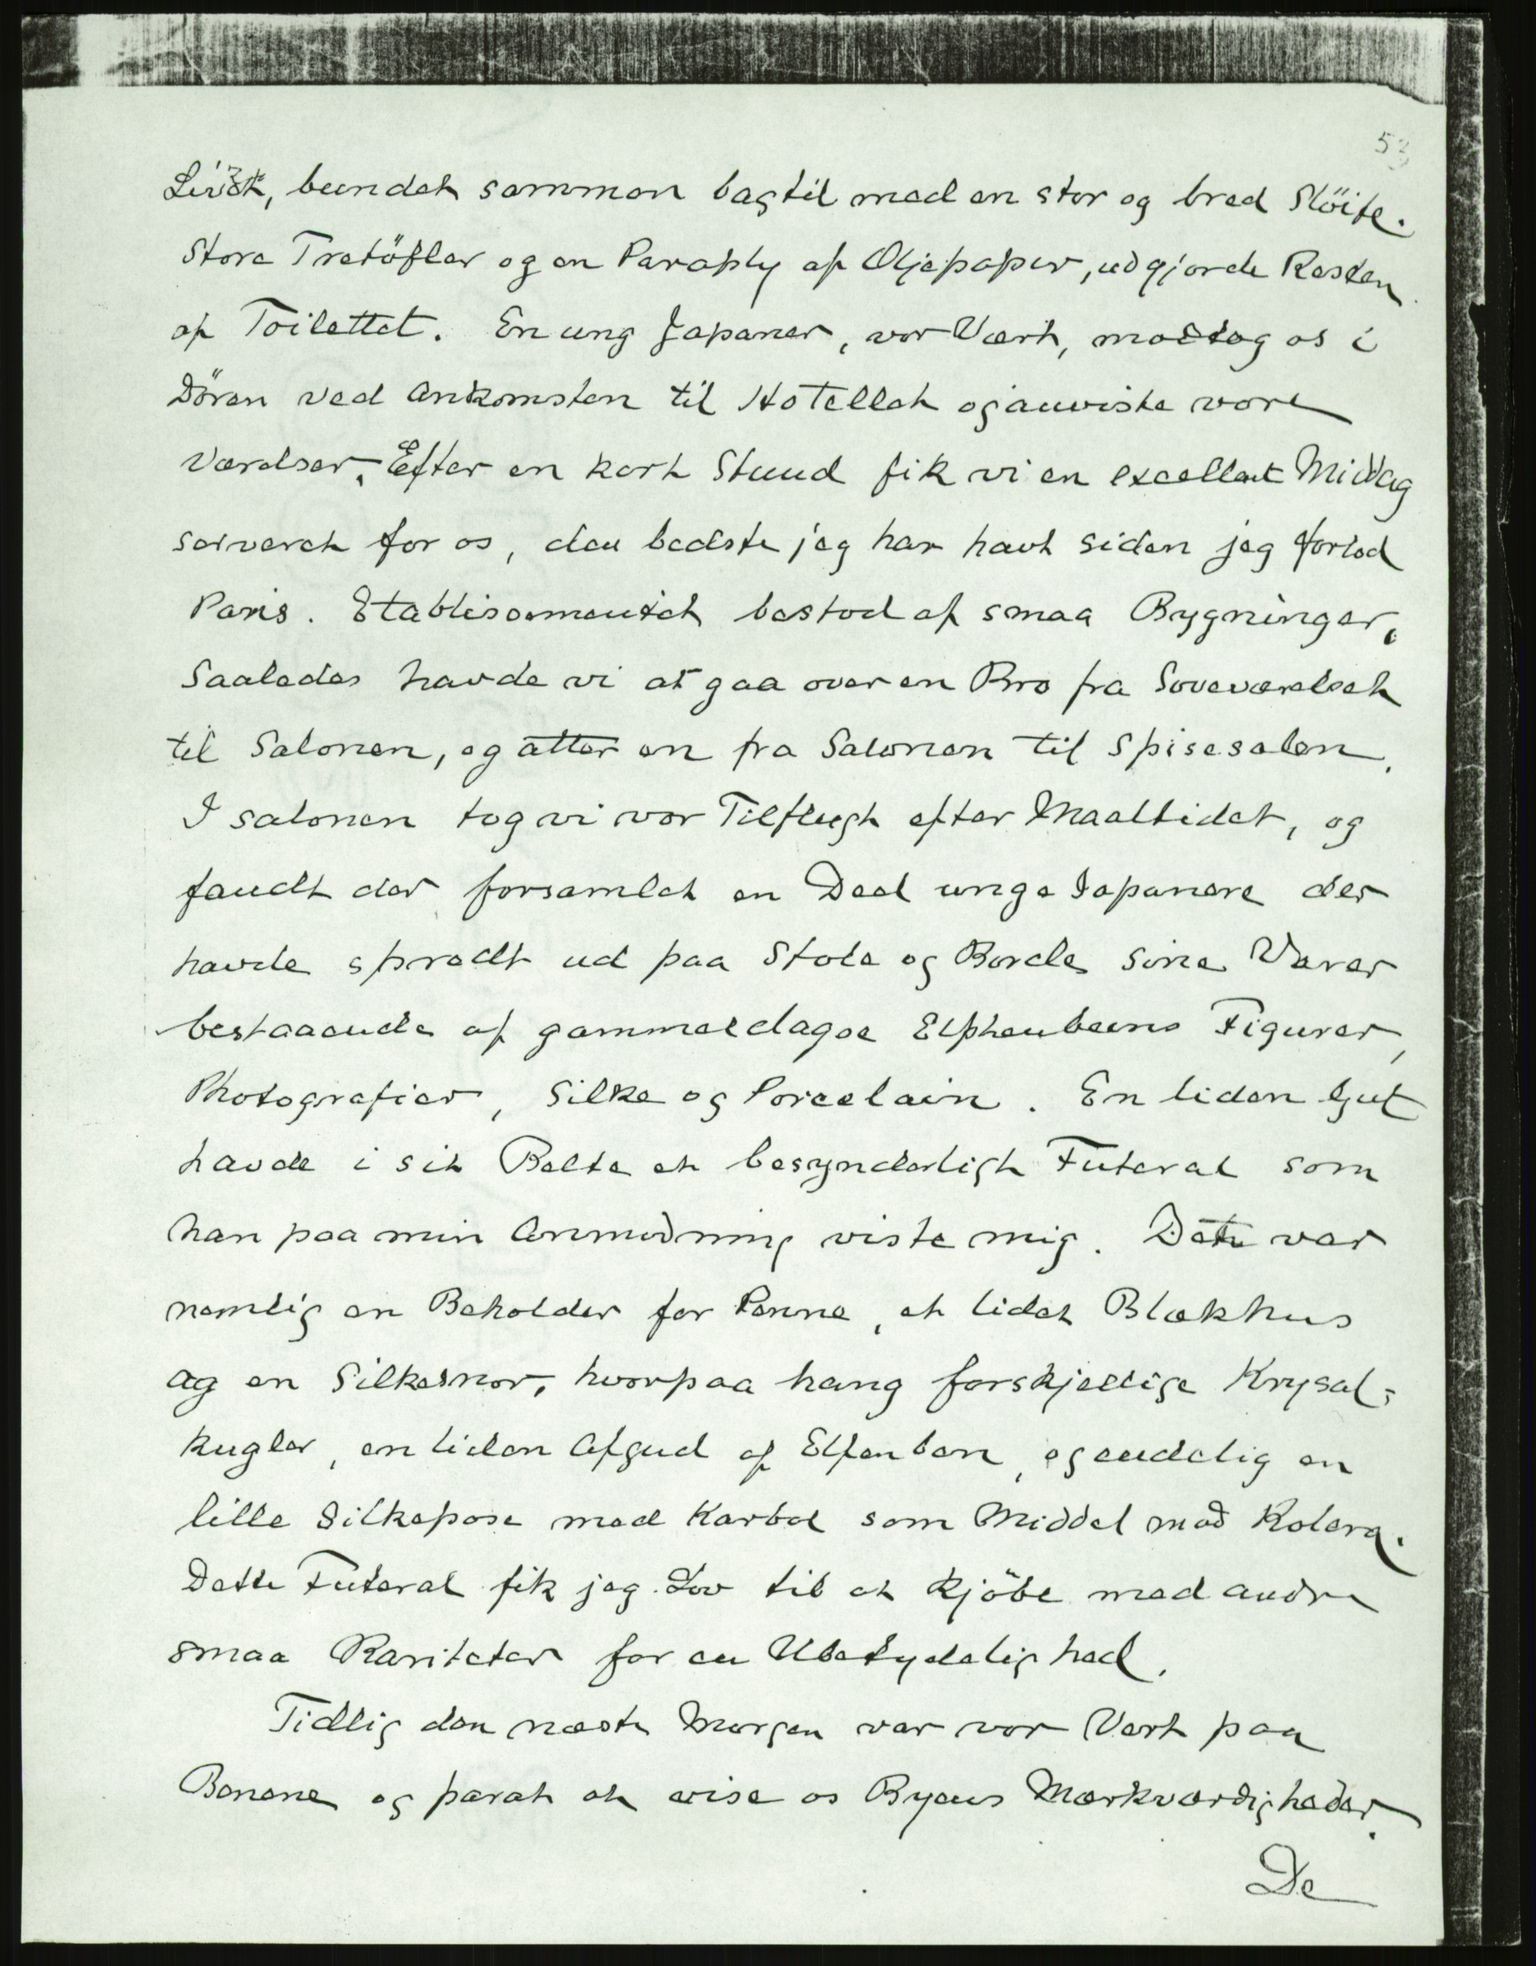 53
Livet, bundet sammen bagtil med en stor og bred Slöife.
Store Tretöfler og en Paraply af Oljepapir, udgjorde Resten
af Toilettet. En ung Japaner, vor Vært, modtog os i
Dören ved Ankomsten til Hotellet og anviste vore
Værelser. Efter en kort Stund fik vi en excellent Middag
serveret for os, den bedste jeg har havt siden jeg forlod
Paris. Etablissementet bestod af smaa Bygninger,
Saaledes havde vi at gaa over en Bro fra Soveværelset
til Salonen, og atter en fra Salonen til Spisesalen.
I salonen tog vi vor Tilflugt efter Maaltidet, og
fandt der forsamlet en Deel unge Japanere der
havde spredt ud paa Stole og Borde sine Varer
bestaaende af gammeldagse Elphenbeens Figurer,
Photografier, Silke og Porcelain. En liden Gut
havde i sit Belte et besynderligt Futeral som
han paa min Anmodning viste mig. Dette var
nemlig en Beholder for Penne, et lidet Blækhus
og en Silkesnor, hvorpaa hang forskjellige Krysal-
kugler, en liden Afgud af Elfenben, og endelig en
lille Silkepose med Karbol som Middel mod Kolera.
Dette Futeral fik jeg Lov til at kjöbe med andre
smaa Rariteter for en Ubetydelighed.
Tidlig den næste Morgen var vor Vert paa
Benene og parat at vise os Byens Mærkværdigheder.
De